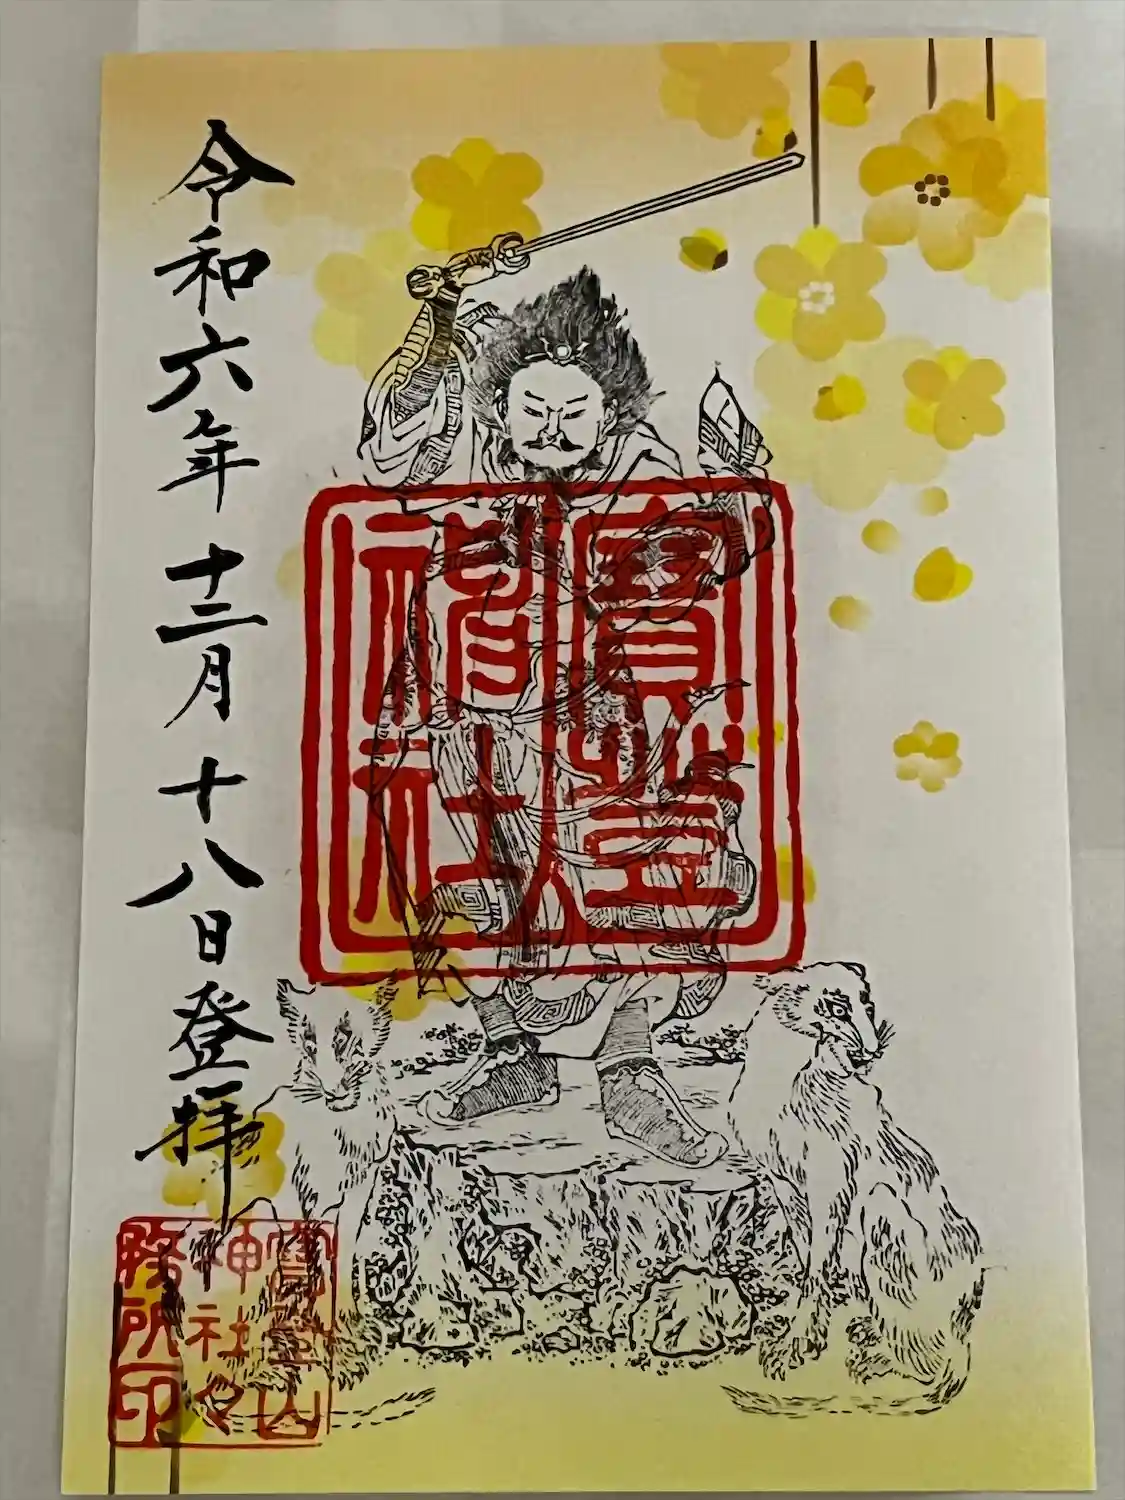 寶登
神社
令和六年十二月十八日登拝
寶登山
神社々
務所印